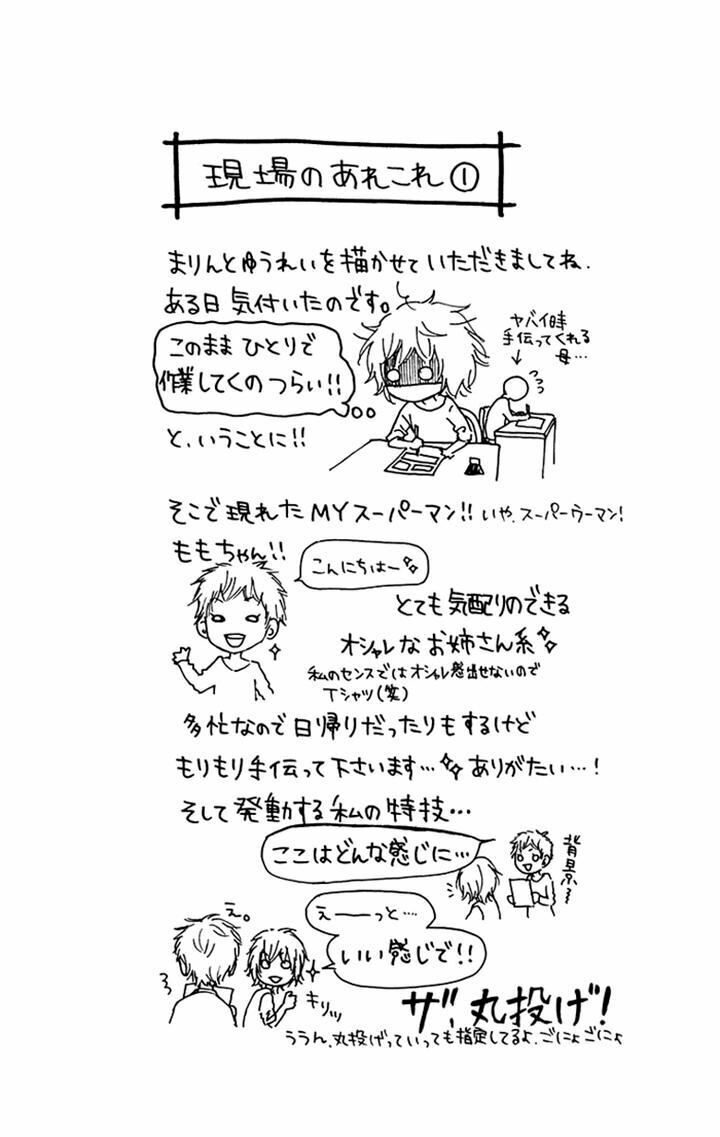 現場のあれこれ①
まりんとゆうれいを描かせていただきましてね、
ある日気付いたのです。
このままひとりで
作業してくのつらい!!
ヤバイ時
手伝ってくれる
母…
と、いうことに!!
そこで現れたMYスーパーマン!! いや、スーパーウーマン!
ももちゃん!!
こんにちはー
とても気配りのできる
オシャレなお姉さん系
私のセンスではオシャレ感出せないので
Tシャツ(笑)
多忙なので日帰りだったりもするけど
もりもり手伝って下さいます… ありがたい…!
そして発動する私の特技…
ここはどんな感じに…
背景
えーーっと…
いい感じで!!
え。
キリッ
ザ、丸投げ!
ううん、丸投げっていっても指定してるよ、ごにょごにょ